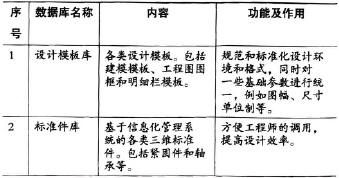 序号 数据库名称 内容 功能及作用
1 设计模板库 各类设计模板。包括 规范和标准化设计环
建模模板、工程图图 境和格式，同时对
框和明细栏模板。 一些基础参数进行统
一，例如图幅、尺寸
单位制等。
2 标准件库 基于信息化管理系 方便工程师的调用，
统的各类三维标准 提高设计效率。
件。包括紧固件和轴
承等。